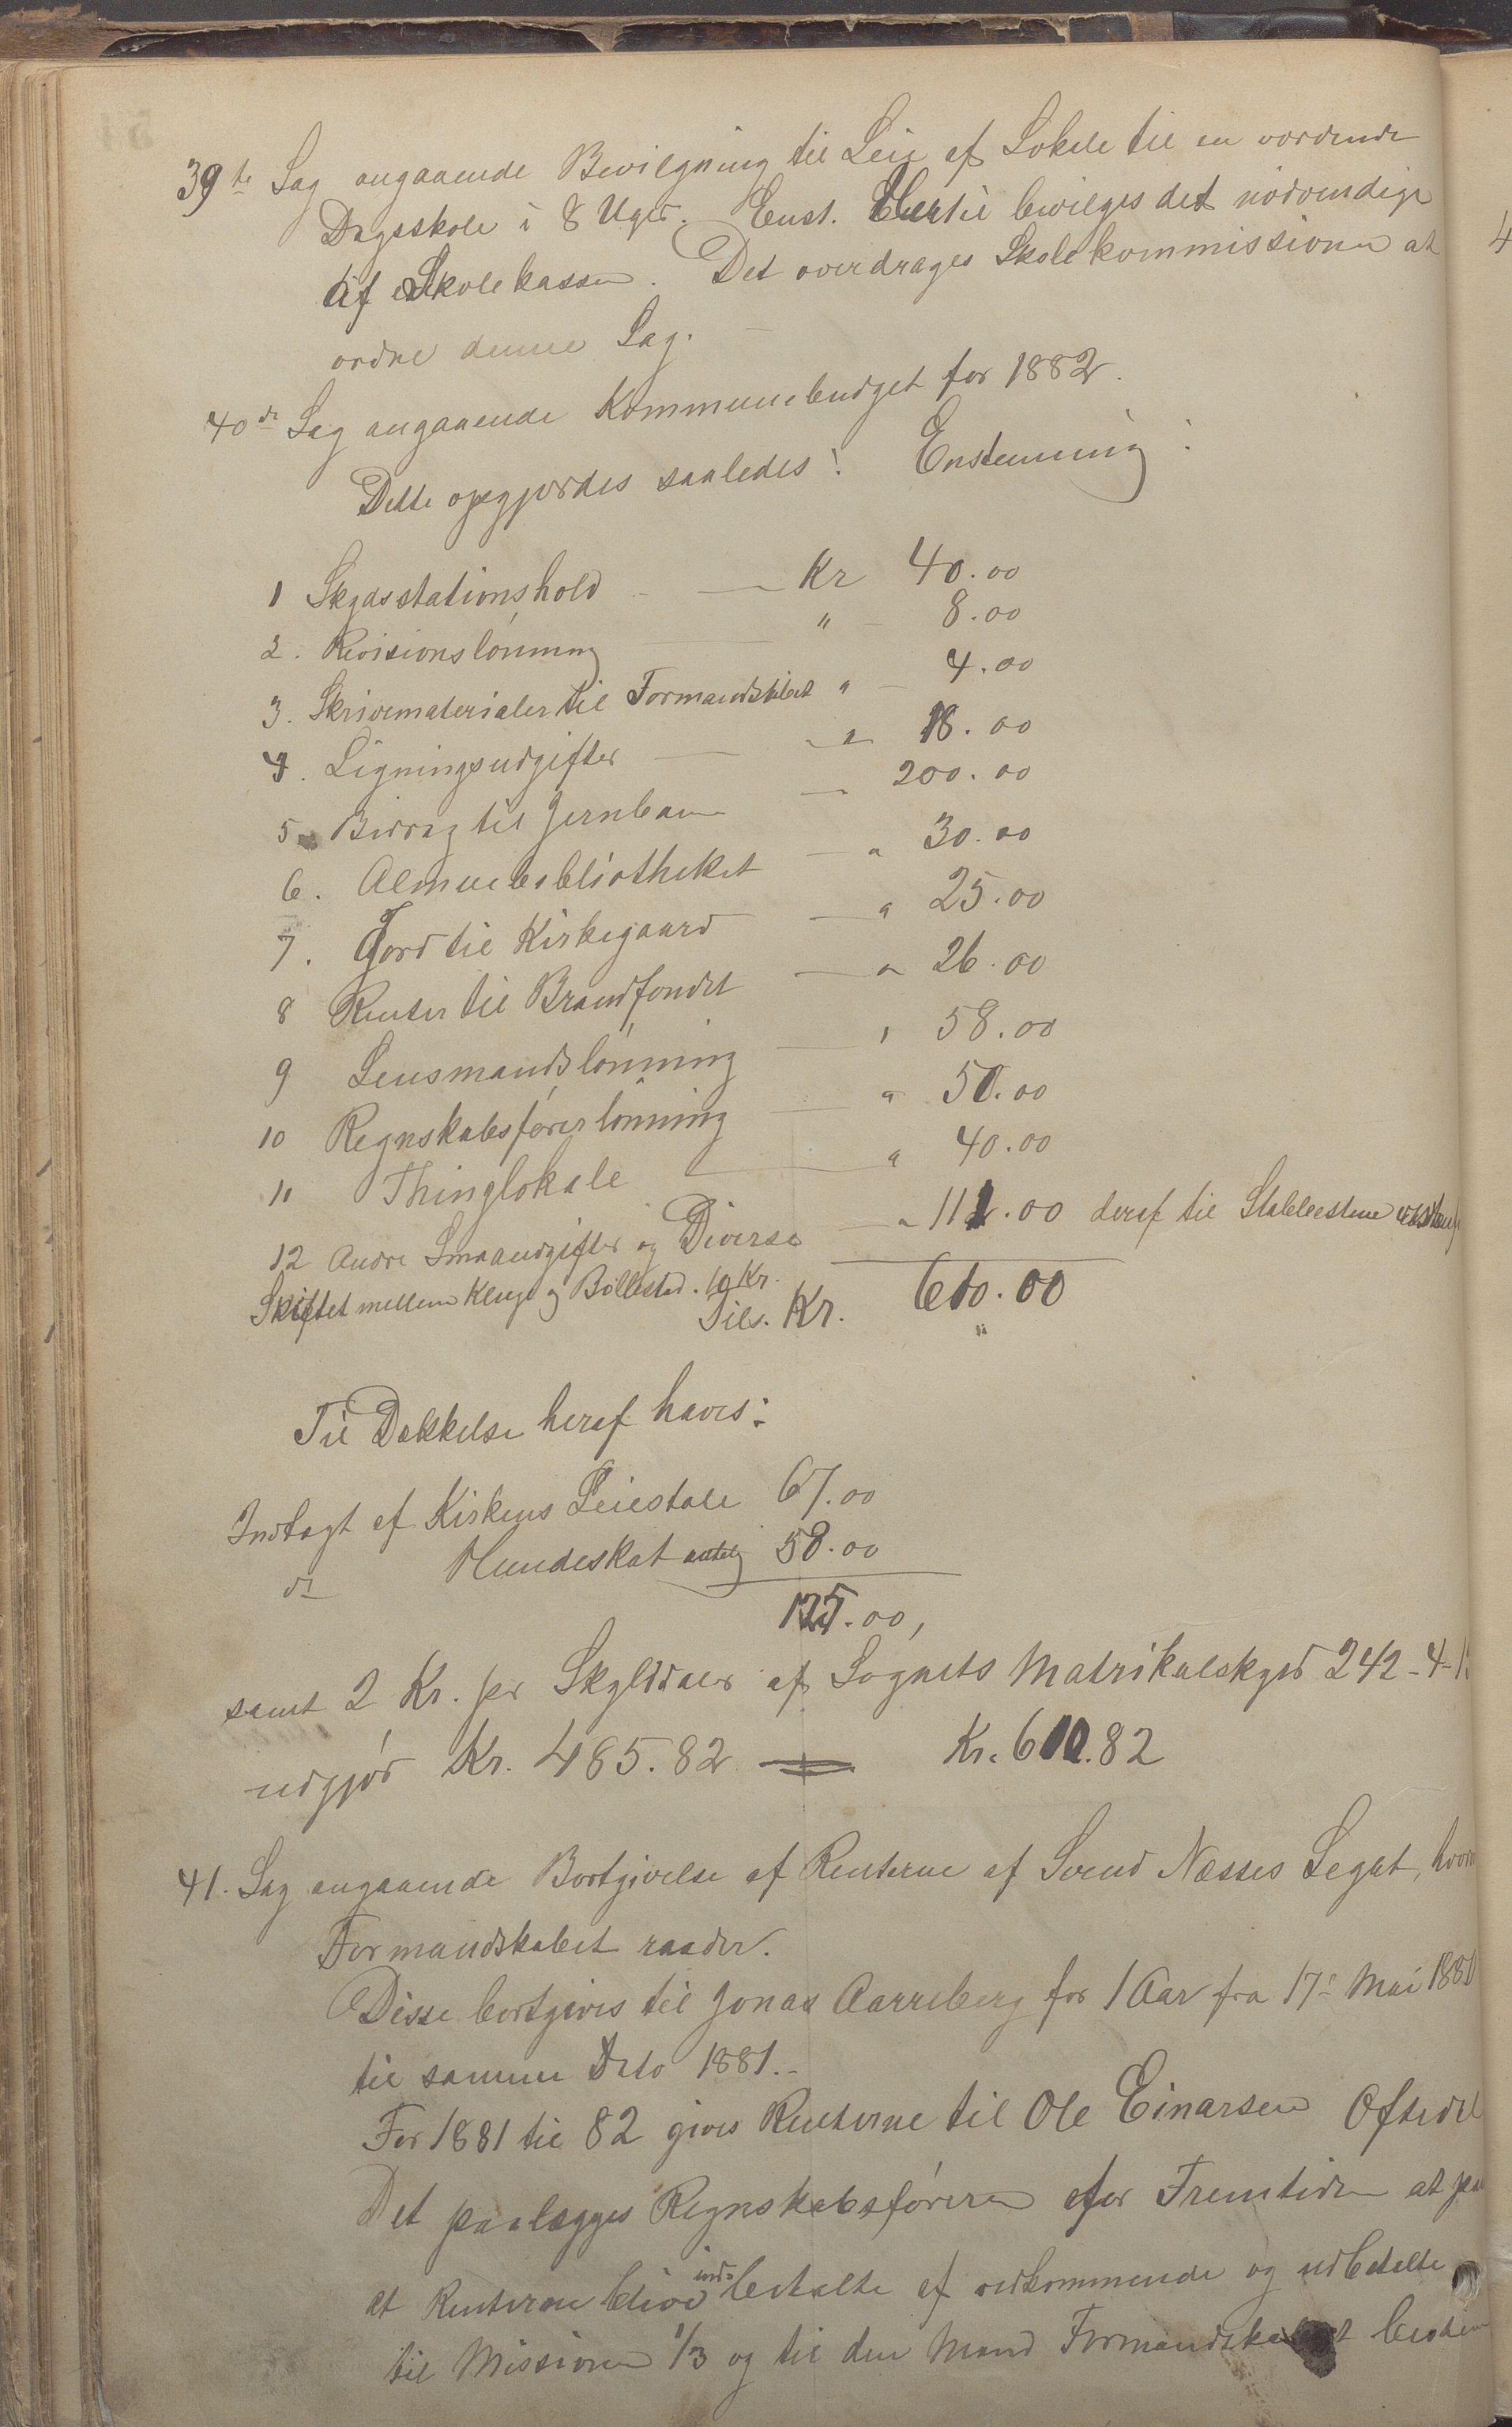 39te Sag angaaende Bevilgning til Leie af Lokale til en vordende
Dagsskole i 8 Uger. Enst. Hertil bevilges det nödvendige
af Skolekassen. Det overdrages Skolekommissionen at
ordne denne Sag.
40de Sag angaaende Kommunebudget for 1882.
Dette opgjordes saaledes: Enstemmig:
1 Skydsstationshold Kr 40.00
2. Revisionslönning " 8.00
3. Skrivematerialer til Formandskabet " 4.00
4. Ligningsudgifter " 18.00
5. Bidrag til Jernbane 200.00
6. Almuebibliotheket " 30.00
7. Jord til Kirkegaard " 25.00
8 Renter til Brandfondet " 26.00
9 Lensmandslönning " 58.00
10 Regnskabsförerlönning " 50.00
11 Thinglokale " 40.00
12 Andre Smaaudgifter og Diverse " 111.00 deraf til Stabbestene
Skiftet mellem Kluge og Böllestad. 10 Kr.
Tils. Kr. 610.00
Til Dækkelse heraf haves:
Indtægt af Kirkens Leiestole 67.00
do Hundeskat antelig 58.00
125.00,
samt 2 Kr. pr Skylddaler af Sognets Matrikulskyld 242-4-
udgjör Kr. 485.82 Kr. 610.82
41. Sag angaaende Bortgivelse af Renterne af Svend Næsses Legat,
Formandskabet raader.
Disse bortgives til Jonas Aarreberg for 1 Aar fra 17de Mai 1880
til samme Dato 1881.-
For 1881 til 82 gives Renterne til Ole Einarsen Oftedal
Det paalægges Regnskabsföreren for Fremtiden at
at Renterne blive indbetalte af vedkommende og udbetalte
til Missionen 1/3 og til den Mand Formandskabet